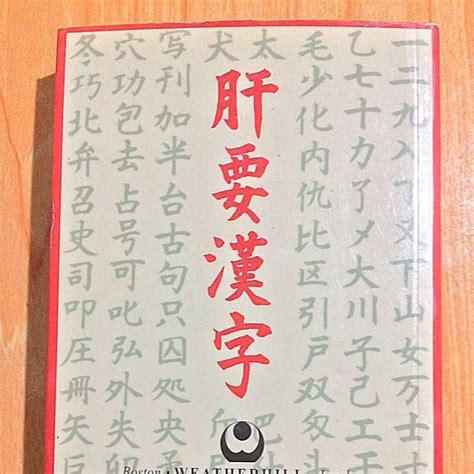 一二九入又下山女万士
乙七十力了大川子己工
毛少化内仇比区引戸双
太
肝要漢字
犬
写刊加半台古句只囚処央
穴功包去占号可叱弘外失
冬巧北弁召司叩圧冊
Boston • WEATHERHILL